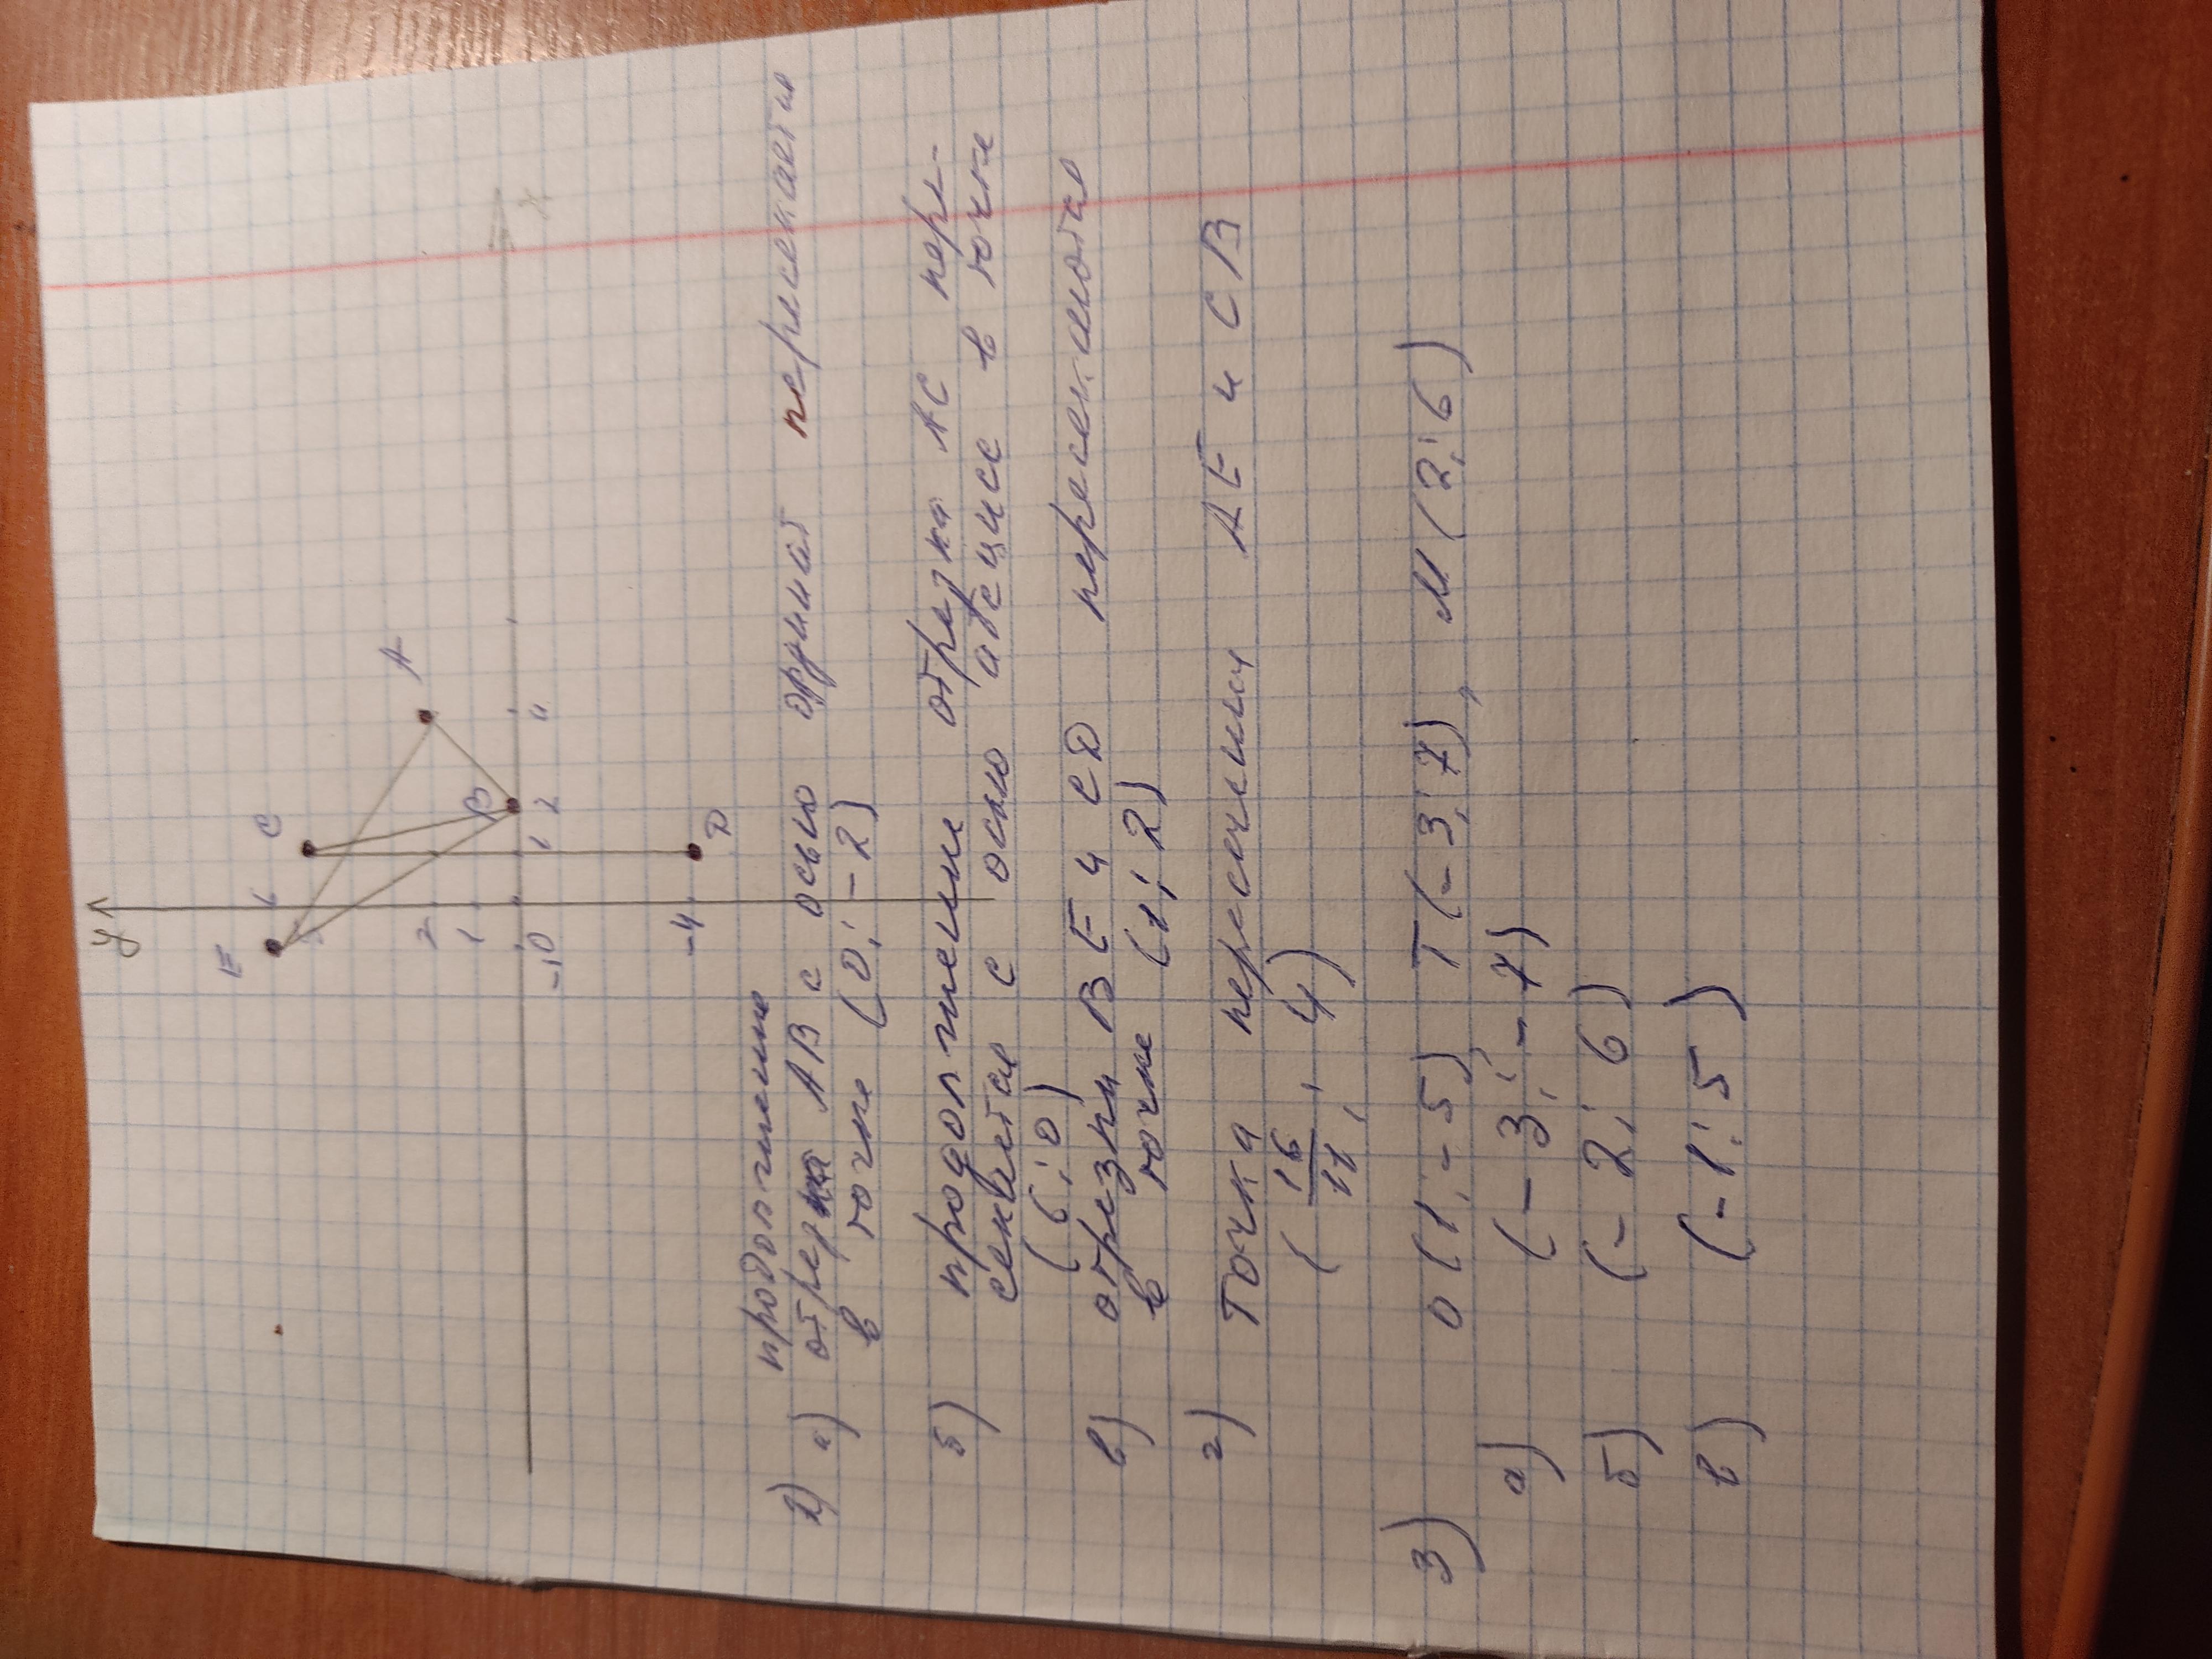 y
E
C
6
5
A
2
1
B
-1 0 1 2 4
x
-4
D
2) продолжение
а) отрезка AB с осью ординат пересекается
в точке (0; -2)
б) продолжение отрезка AC пере-
секается с осью абсцисс в точке
(6; 0)
в) отрезки BE и CD пересекются
в точке (1; 2)
г) Точка пересечения AE и CB
(16/11; 4)
3) O (1; -5) T (-3; 7), M (2; 6)
а) (-3; -7)
б) (-2; 6)
в) (-1; 5)